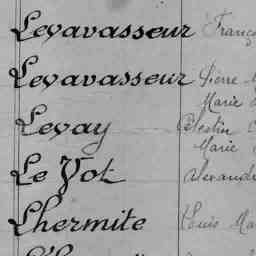 Levavasseur Franç
Levavasseur Pierre
Marie
Levay Célestin
Marie
Le Vot Alexand
Lhermite Louis Ma